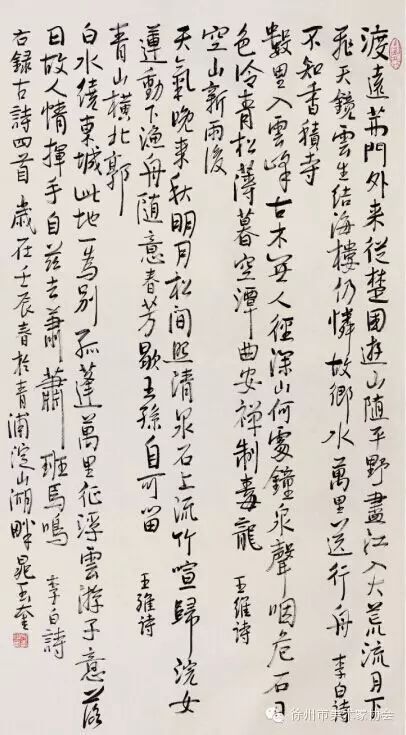 渡遠荊門外来從楚國遊山随平野盡江入大荒流月下
飛天鏡雲生结海樓仍憐故鄉水萬里送行舟 李白诗
不知香積寺
數里入雲峰古木無人徑深山何處鐘泉聲咽危石日
色冷青松薄暮空潭曲安禅制毒龍 王维诗
空山新雨後
天氣晚来秋明月松间照清泉石上流竹喧歸浣女
蓮動下漁舟随意春芳歇王孫自可留 王維诗
青山横北郭
白水繞東城此地一為别孤蓬萬里征浮雲游子意落
日故人情揮手自兹去蕭蕭班馬鳴 李白詩
右録古詩四首 歲在壬辰春於青浦淀山湖畔 晁玉奎
徐州市美术家协会